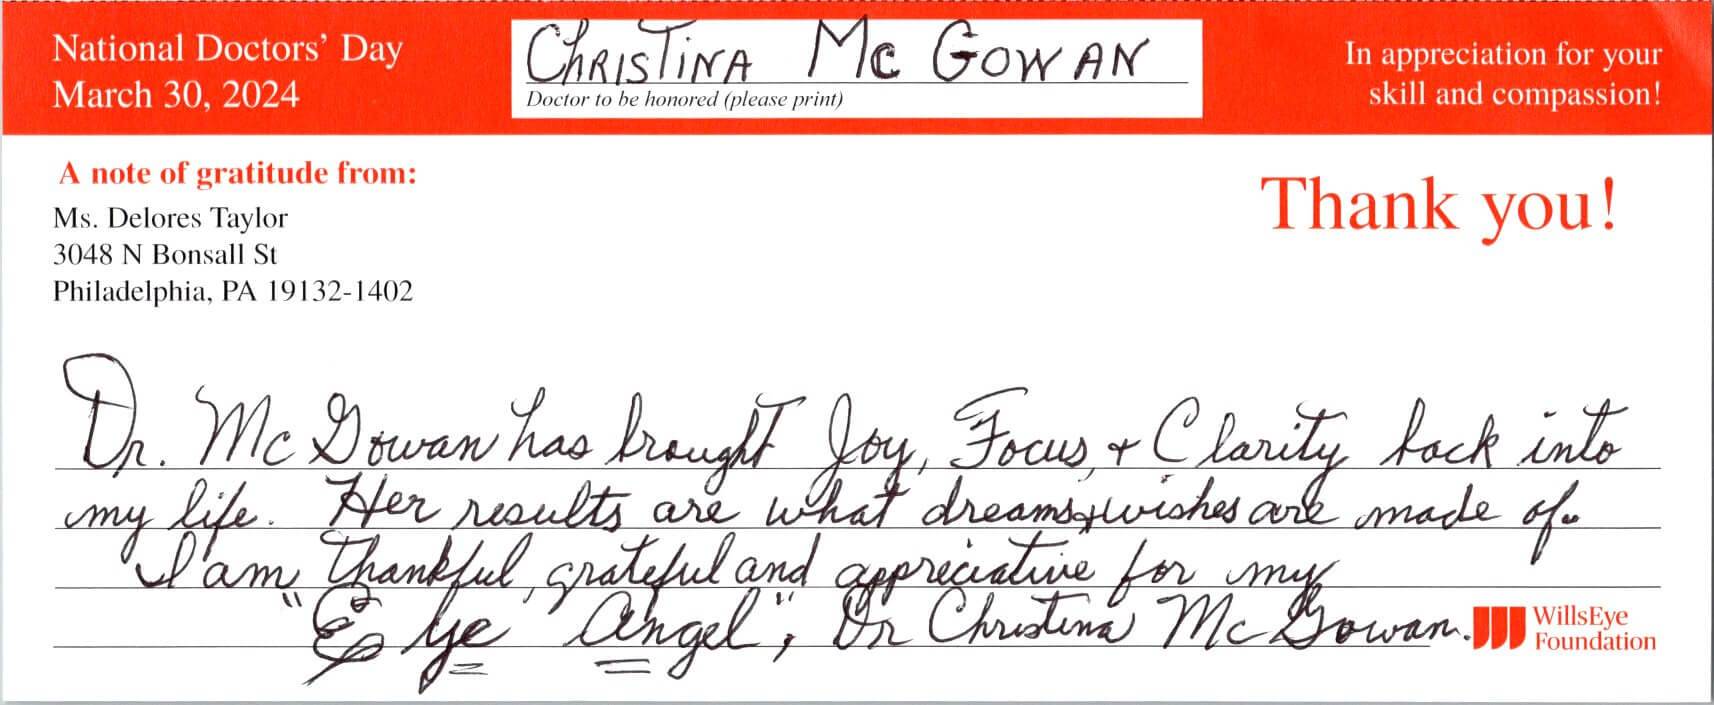 National Doctors' Day
March 30, 2024
Christina Mc Gowan
Doctor to be honored (please print)
In appreciation for your
skill and compassion!
A note of gratitude from:
Ms. Delores Taylor
3048 N Bonsall St
Philadelphia, PA 19132-1402
Thank you!
Dr. Mc Gowan has brought Joy, Focus, + Clarity back into
my life. Her results are what dreams + wishes are made of.
I am thankful, grateful and appreciative for my
"Eye Angel", Dr Christina Mc Gowan.
WillsEye
Foundation